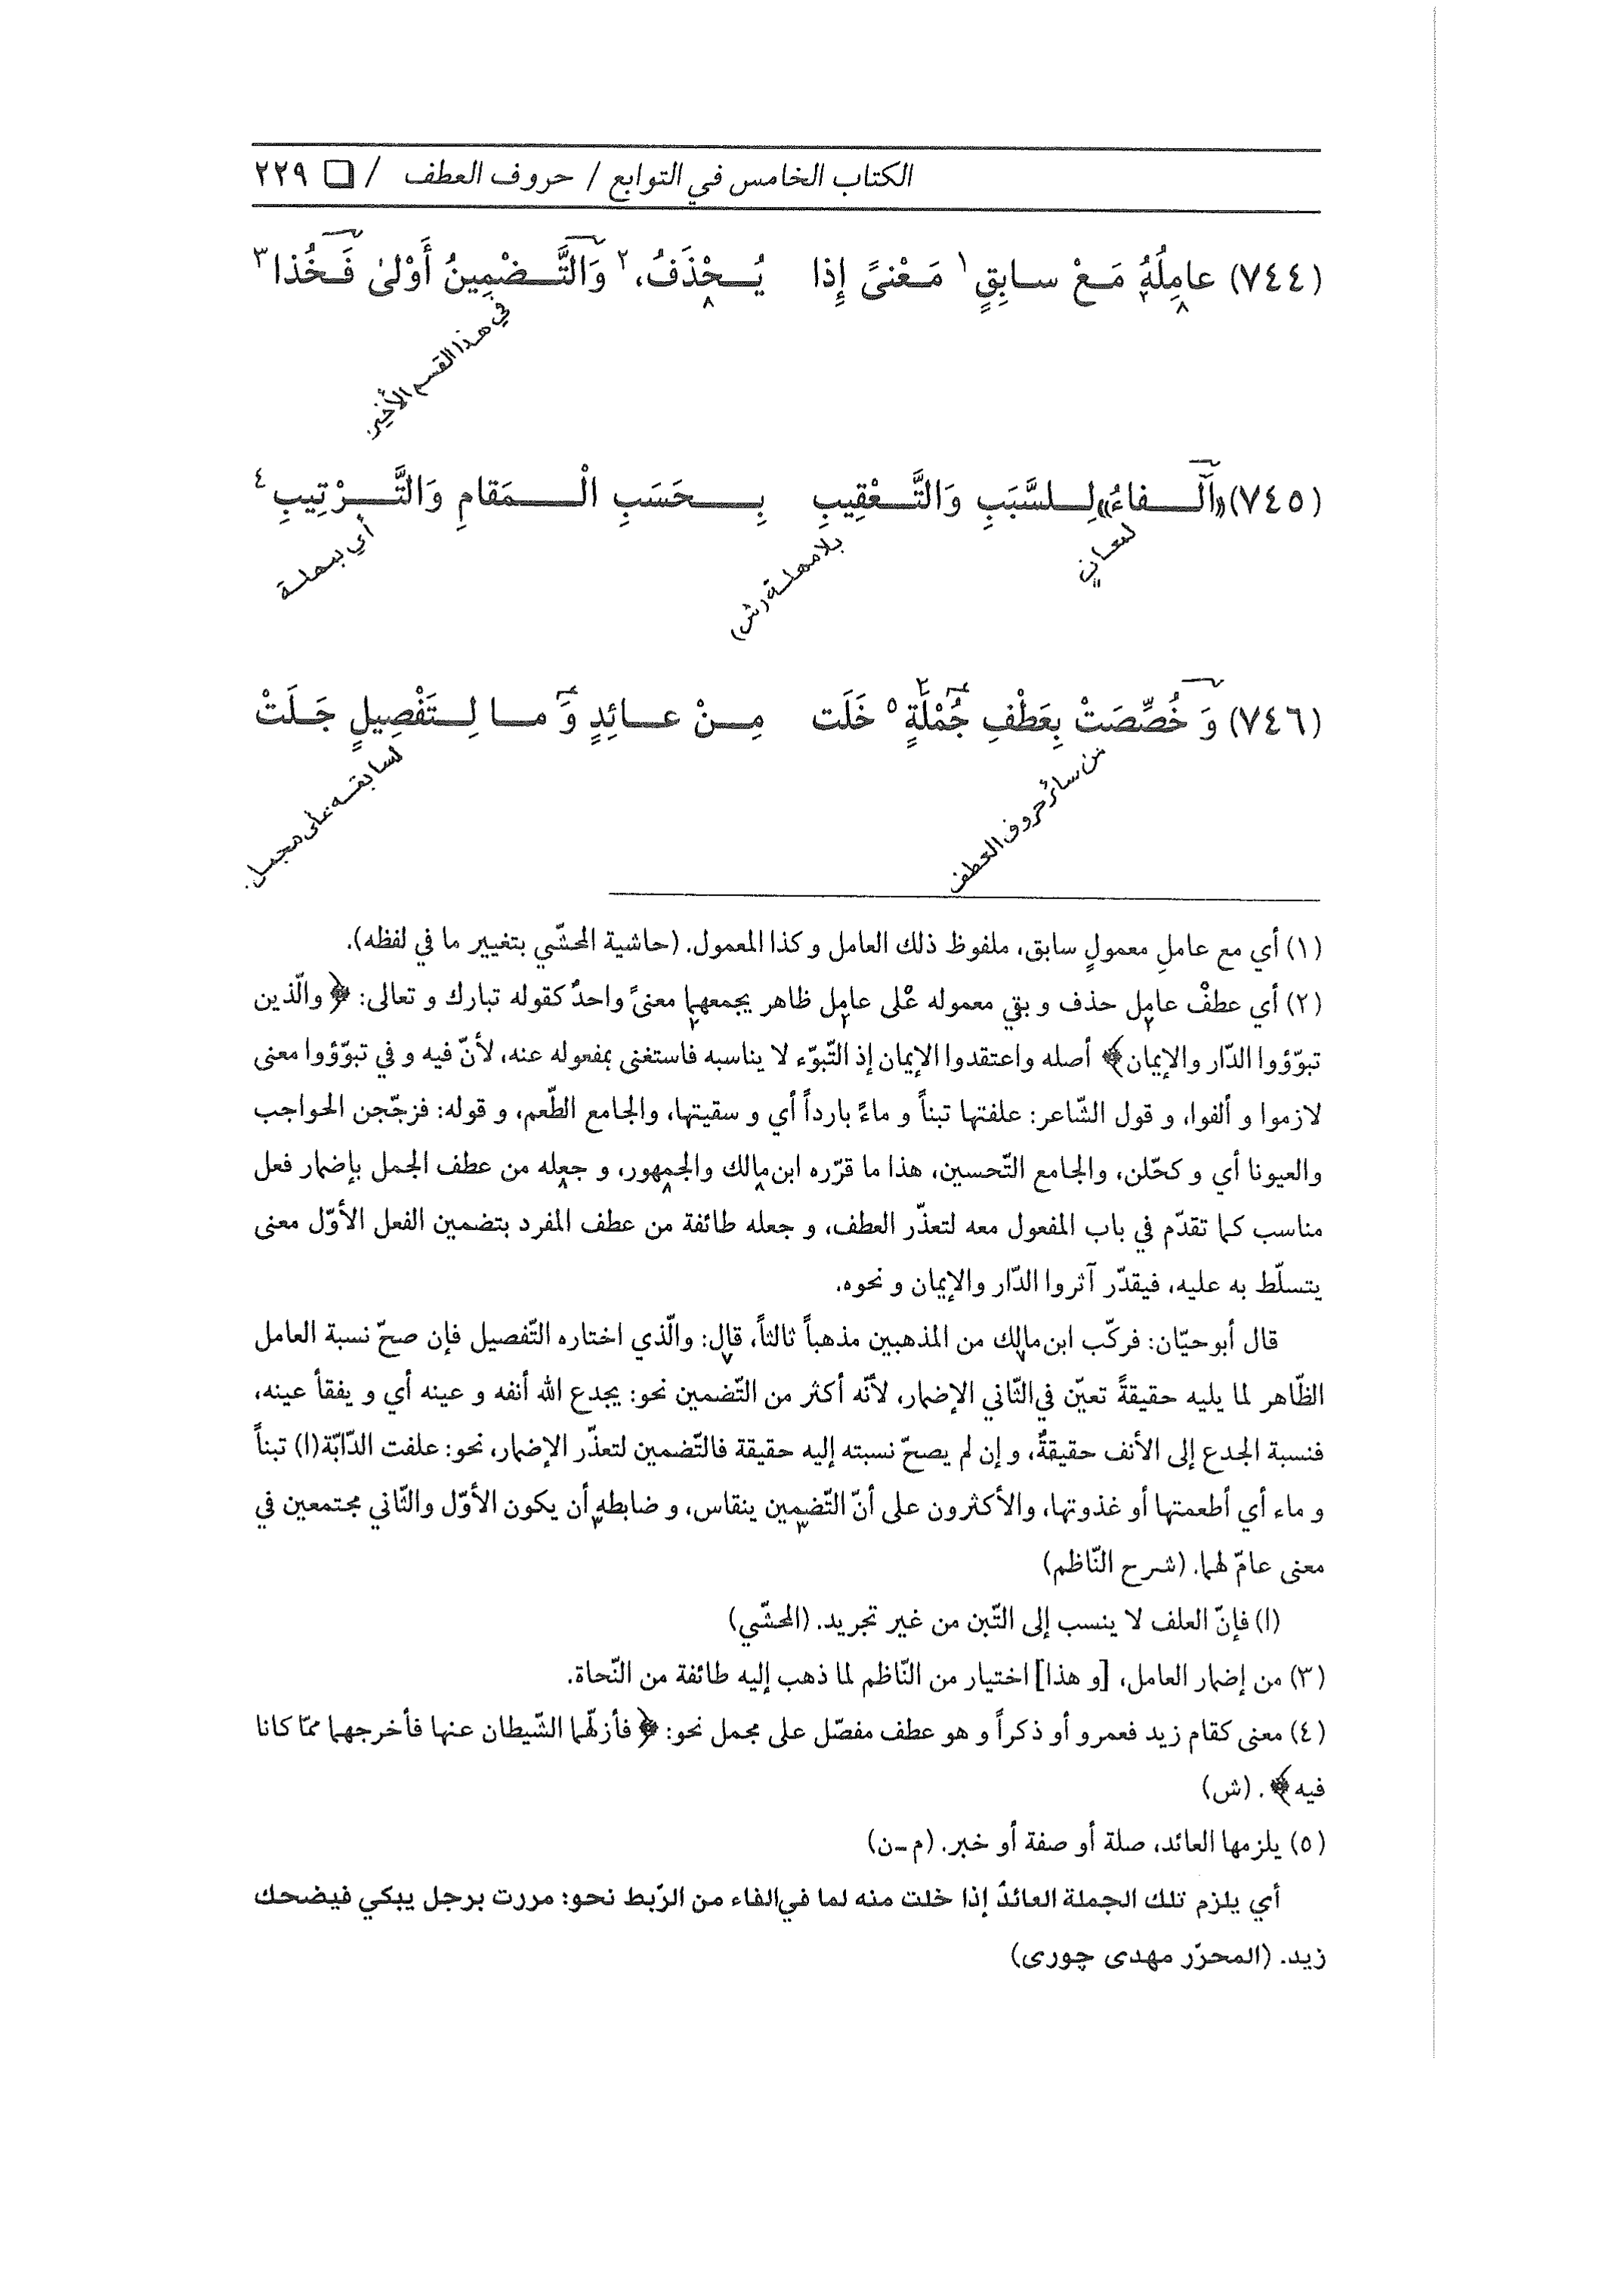 الكتاب الخامس في التوابع / حروف العطف / □ ٢٢٩
(٧٤٤) عامِلَهُ مَعْ سابِقٍ ١ مَعْنىً إِذا يُحْذَفُ، ٢ وَالتَّضْمِينُ أَوْلىٰ فَخُذا ٣
في هذا القسم الأخير
(٧٤٥) «اَلْفاءُ» لِلسَّبَبِ وَالتَّعْقِيبِ بِحَسَبِ الْمَقامِ وَالتَّرْتِيبِ ٤
لمعانٍ
بلا مهلة (ش)
أي بمهلة
(٧٤٦) وَ خُصِّصَتْ بِعَطْفِ جُمْلَةٍ ٥ خَلَت مِنْ عائِدٍ وَ ما لِتَفْصِيلٍ جَلَتْ
من سائر حروف العطف
لسابقه على مجمل.
(١) أي مع عاملِ معمولٍ سابق، ملفوظ ذلك العامل و كذا المعمول. (حاشية المحشّي بتغيير ما في لفظه).
(٢) أي عطفْ عامِل حذف و بقي معموله عْلى عامِل ظاهر يجمعهما معنىً واحدٌ كقوله تبارك و تعالى: ﴿والّذين
تبوّؤوا الدّار والإيمان﴾ أصله واعتقدوا الإيمان إذ التّبوّء لا يناسبه فاستغنى بمفعوله عنه، لأنّ فيه و في تبوّؤوا معنى
لازموا و ألفوا، و قول الشّاعر: علفتها تبناً و ماءً بارداً أي و سقيتها، والجامع الطّعم، و قوله: فزجّجن الحواجب
والعيونا أي و كحّلن، والجامع التّحسين، هذا ما قرّره ابن مالك والجمهور، و جعله من عطف الجمل بإضمار فعل
مناسب كما تقدّم في باب المفعول معه لتعذّر العطف، و جعله طائفة من عطف المفرد بتضمين الفعل الأوّل معنى
يتسلّط به عليه، فيقدّر آثروا الدّار والإيمان و نحوه.
قال أبو حيّان: فركّب ابن مالك من المذهبين مذهباً ثالثاً، قال: والّذي اختاره التّفصيل فإن صحّ نسبة العامل
الظّاهر لما يليه حقيقةً تعيّن في الثّاني الإضمار، لأنّه أكثر من التّضمين نحو: يجدع الله أنفه و عينه أي و يفقأ عينه،
فنسبة الجدع إلى الأنف حقيقةٌ، و إن لم يصحّ نسبته إليه حقيقة فالتّضمين لتعذّر الإضمار، نحو: علفت الدّابّة(ا) تبناً
و ماء أي أطعمتها أو غذوتها، والأكثرون على أنّ التّضمين ينقاس، و ضابطه أن يكون الأوّل والثّاني مجتمعين في
معنى عامّ لهما. (شرح النّاظم)
(ا) فإنّ العلف لا ينسب إلى التّبن من غير تجريد. (المحشّي)
(٣) من إضمار العامل، [و هذا] اختيار من النّاظم لما ذهب إليه طائفة من النّحاة.
(٤) معنى كقام زيد فعمرو أو ذكراً و هو عطف مفصّل على مجمل نحو: ﴿فأزلّهما الشّيطان عنها فأخرجهما ممّا كانا
فيه﴾. (ش)
(٥) يلزمها العائد، صلة أو صفة أو خبر. (م-ن)
أي يلزم تلك الجملة العائدُ إذا خلت منه لما في الفاء من الرّبط نحو: مررت برجل يبكي فيضحك
زيد. (المحرّر مهدى چورى)